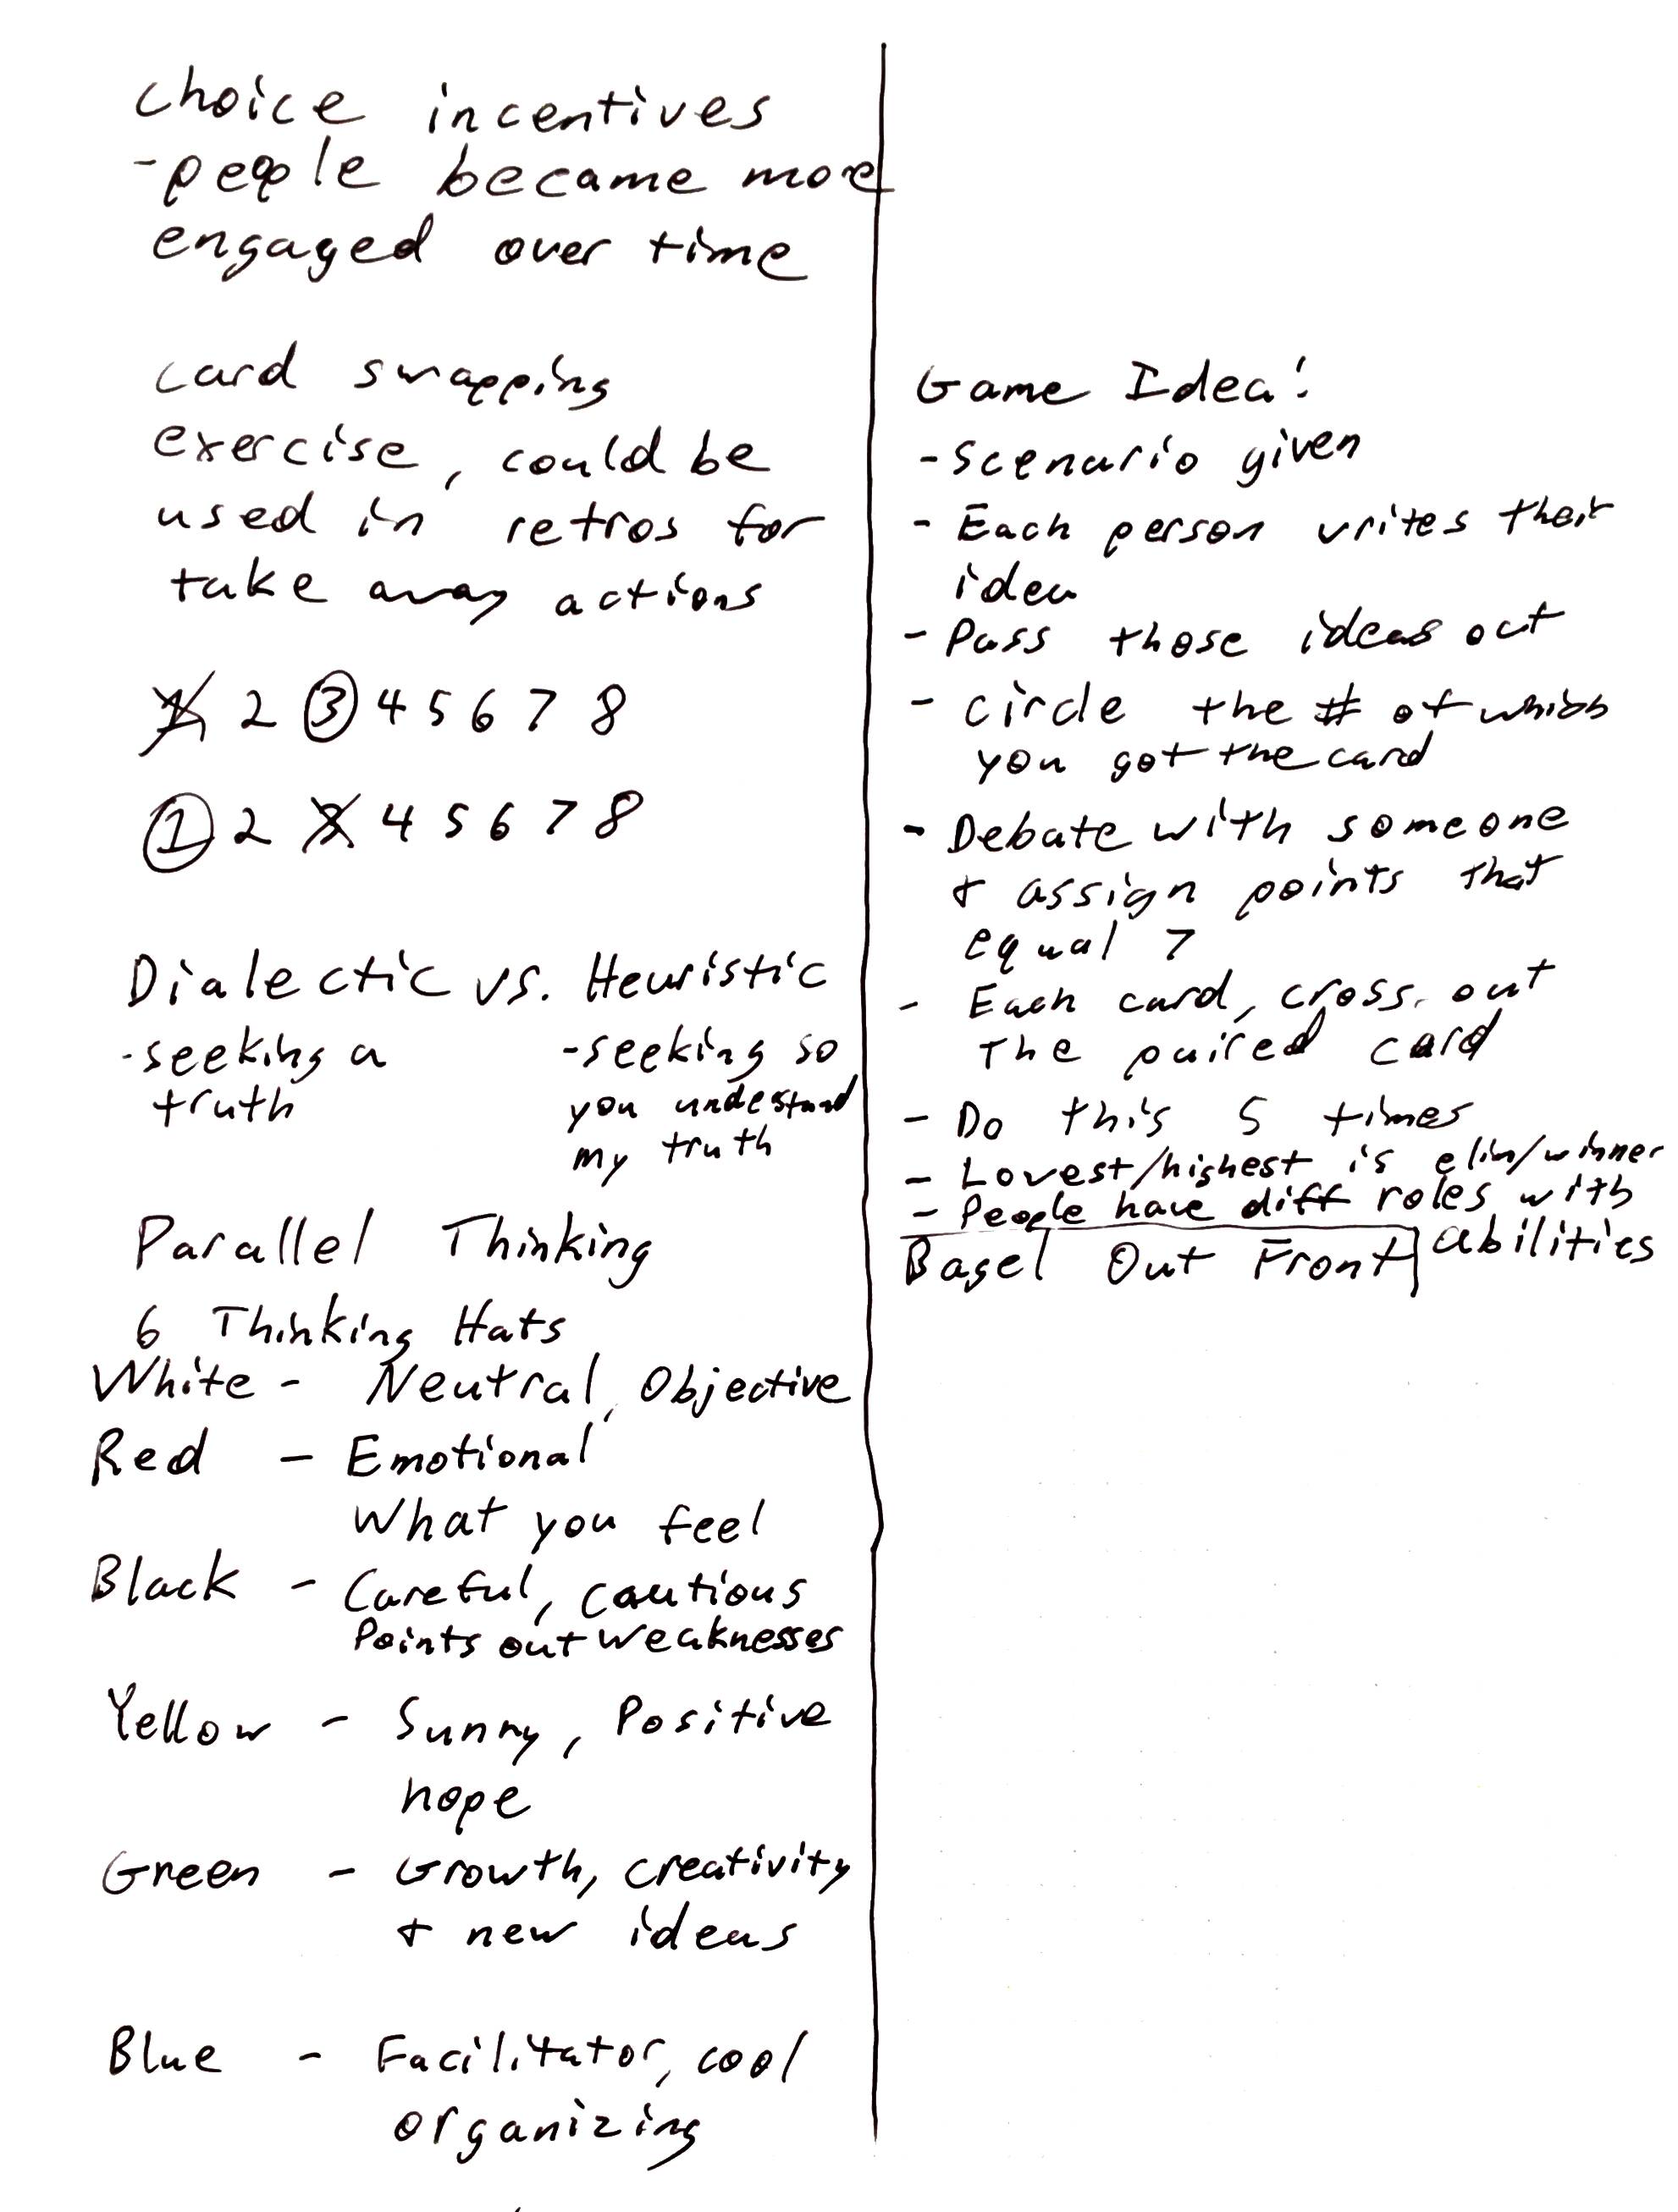 choice incentives
-people became more
engaged over time
card swapping
exercise, could be
used in retros for
take away actions
1 2 3 4 5 6 7 8
1 2 3 4 5 6 7 8
Dialectic vs. Heuristic
-seeking a
truth
-seeking so
you understand
my truth
Parallel Thinking
6 Thinking Hats
White - Neutral, Objective
Red - Emotional
What you feel
Black - Careful, cautious
Points out weaknesses
Yellow - Sunny, Positive
hope
Green - Growth, creativity
+ new ideas
Blue - Facilitator, cool
organizing
Game Idea:
- Scenario given
- Each person writes their
idea
- Pass those ideas out
- circle the # of which
you got the card
- Debate with someone
+ assign points that
equal 7
- Each card, cross out
the paired card
- Do this 5 times
- Lowest/highest is elim/winner
- People have diff roles with
abilities
Bagel Out Front